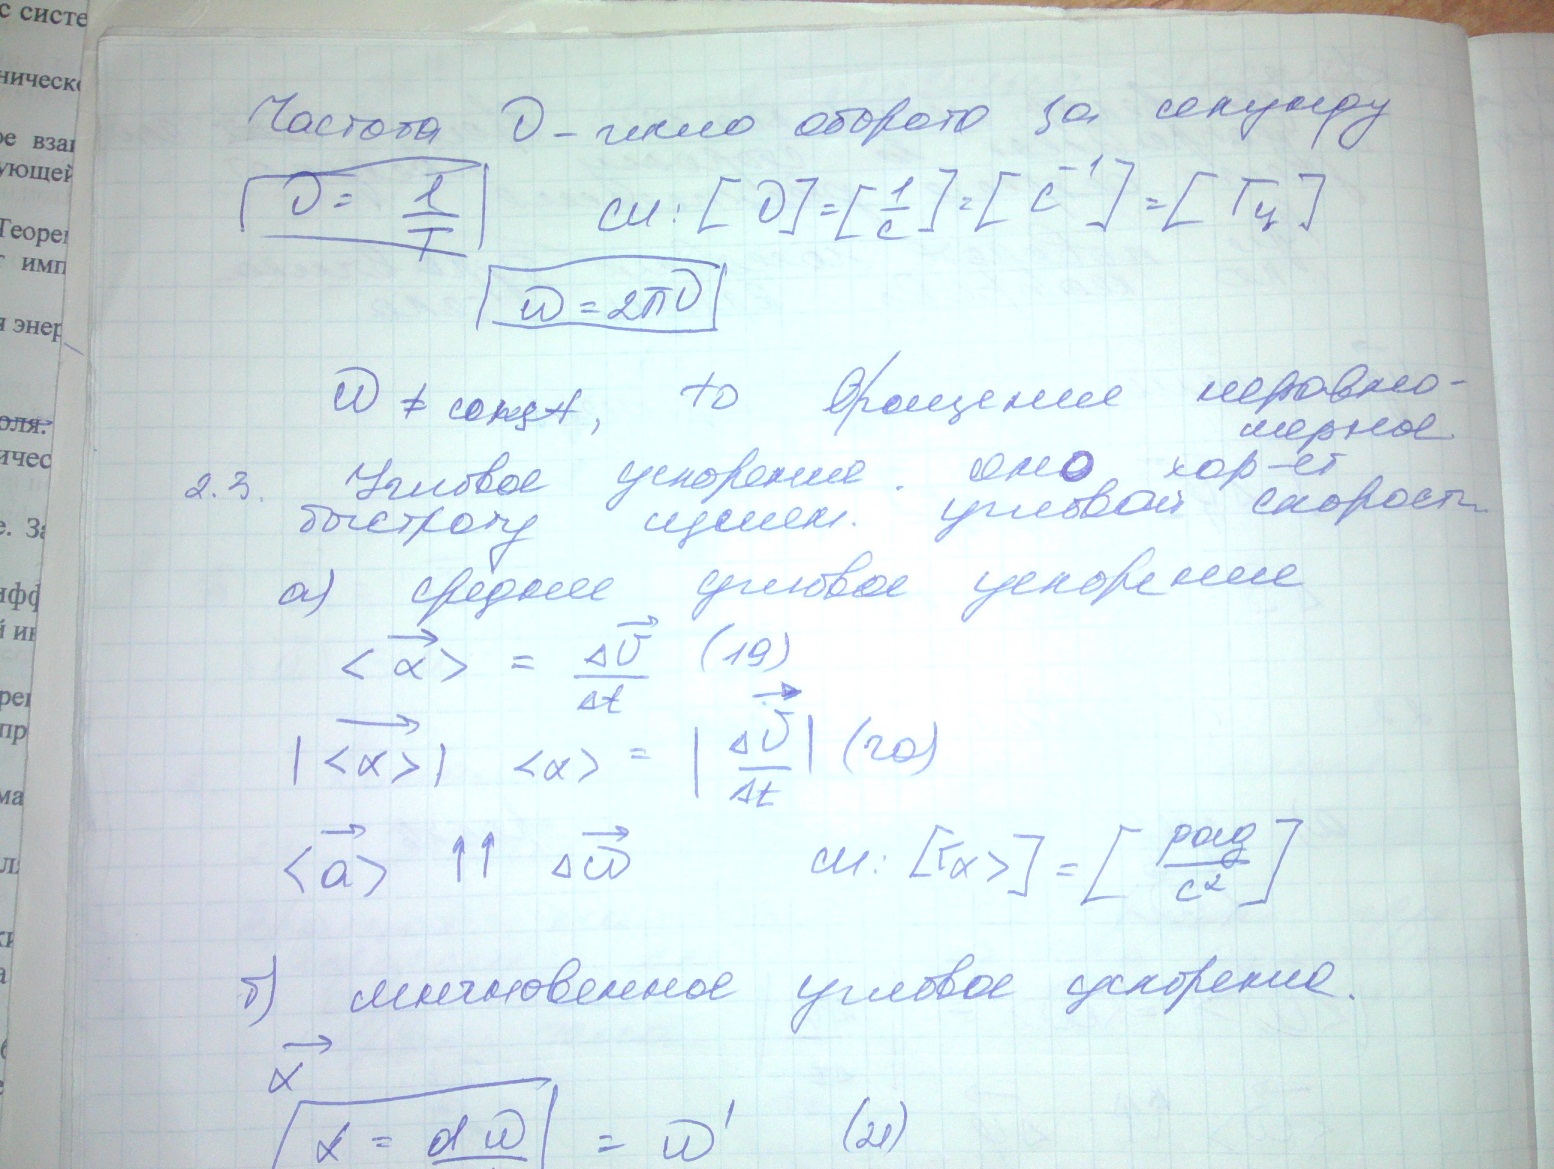 с систе
ническо
ое взаи
ующей
Теорем
т имп
я энер
оля.
ичес
е. За
ифф
й ин
рен
пр
ма
Частота υ – число оборото за секунду
υ = 1/T   СИ: [υ] = [1/с] = [с⁻¹] = [Гц]
ω = 2πυ
ω ≠ const, то вращение неравно-
мерное
2.3. Угловое ускорение. оно хар-ет
быстроту измен. угловой скорост
а) среднее угловое ускорение
<α⃗> = Δυ⃗/Δt (19)
|<α⃗>| <α> = |Δυ⃗/Δt| (20)
<a⃗> ↑↑ Δω⃗   СИ: [<α>] = [рад/с²]
б) мгновенное угловое ускорение.
α⃗
α = dω = ω' (21)